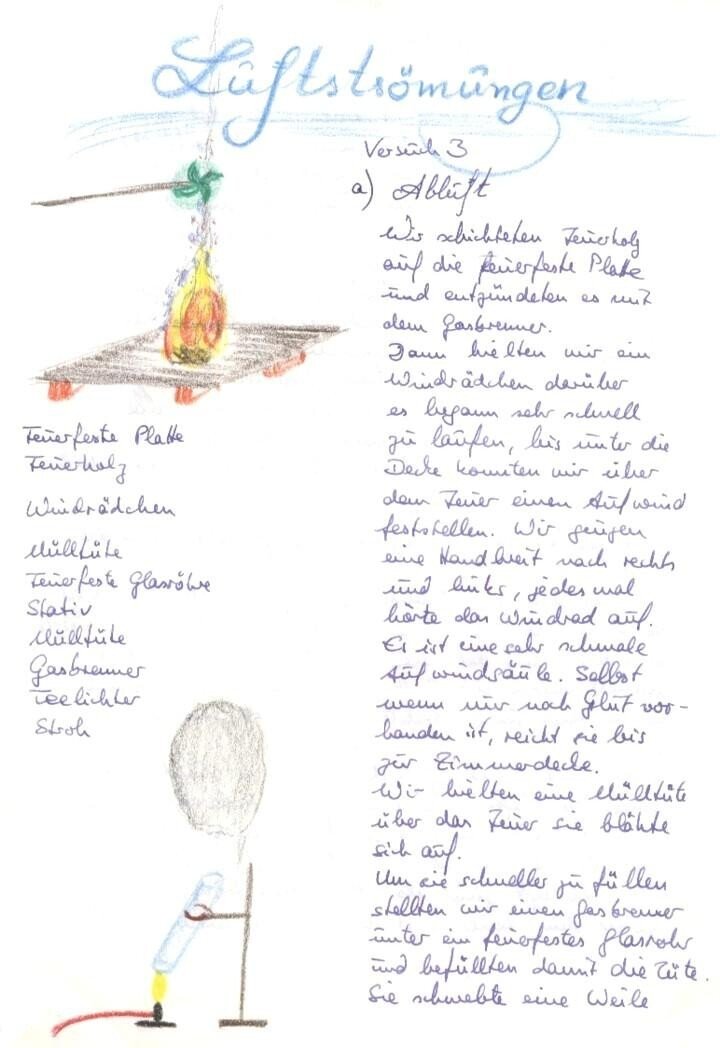 Luftströmungen
Versuch 3
a) Abluft
Wir schichteten Feuerholz
auf die feuerfeste Platte
und entzündeten es mit
dem Gasbrenner.
Dann hielten wir ein
Windrädchen darüber
es begann sehr schnell
zu laufen, bis unter die
Decke konnten wir über
dem Feuer einen Aufwind
feststellen. Wir gingen
eine Handbreit nach rechts
und links, jedes mal
hörte das Windrad auf.
Es ist eine sehr schmale
Aufwindsäule. Selbst
wenn nur noch Glut vor-
handen ist, reicht sie bis
zur Zimmerdecke.
Wir hielten eine Mülltüte
über das Feuer sie blähte
sich auf.
Um sie schneller zu füllen
stellten wir einen Gasbrenner
unter ein feuerfestes Glasrohr
und befüllten damit die Tüte.
Sie schwebte eine Weile
Feuerfeste Platte
Feuerholz
Windrädchen
Mülltüte
Feuerfeste Glasröhre
Stativ
Mülltüte
Gasbrenner
Teelichter
Stroh